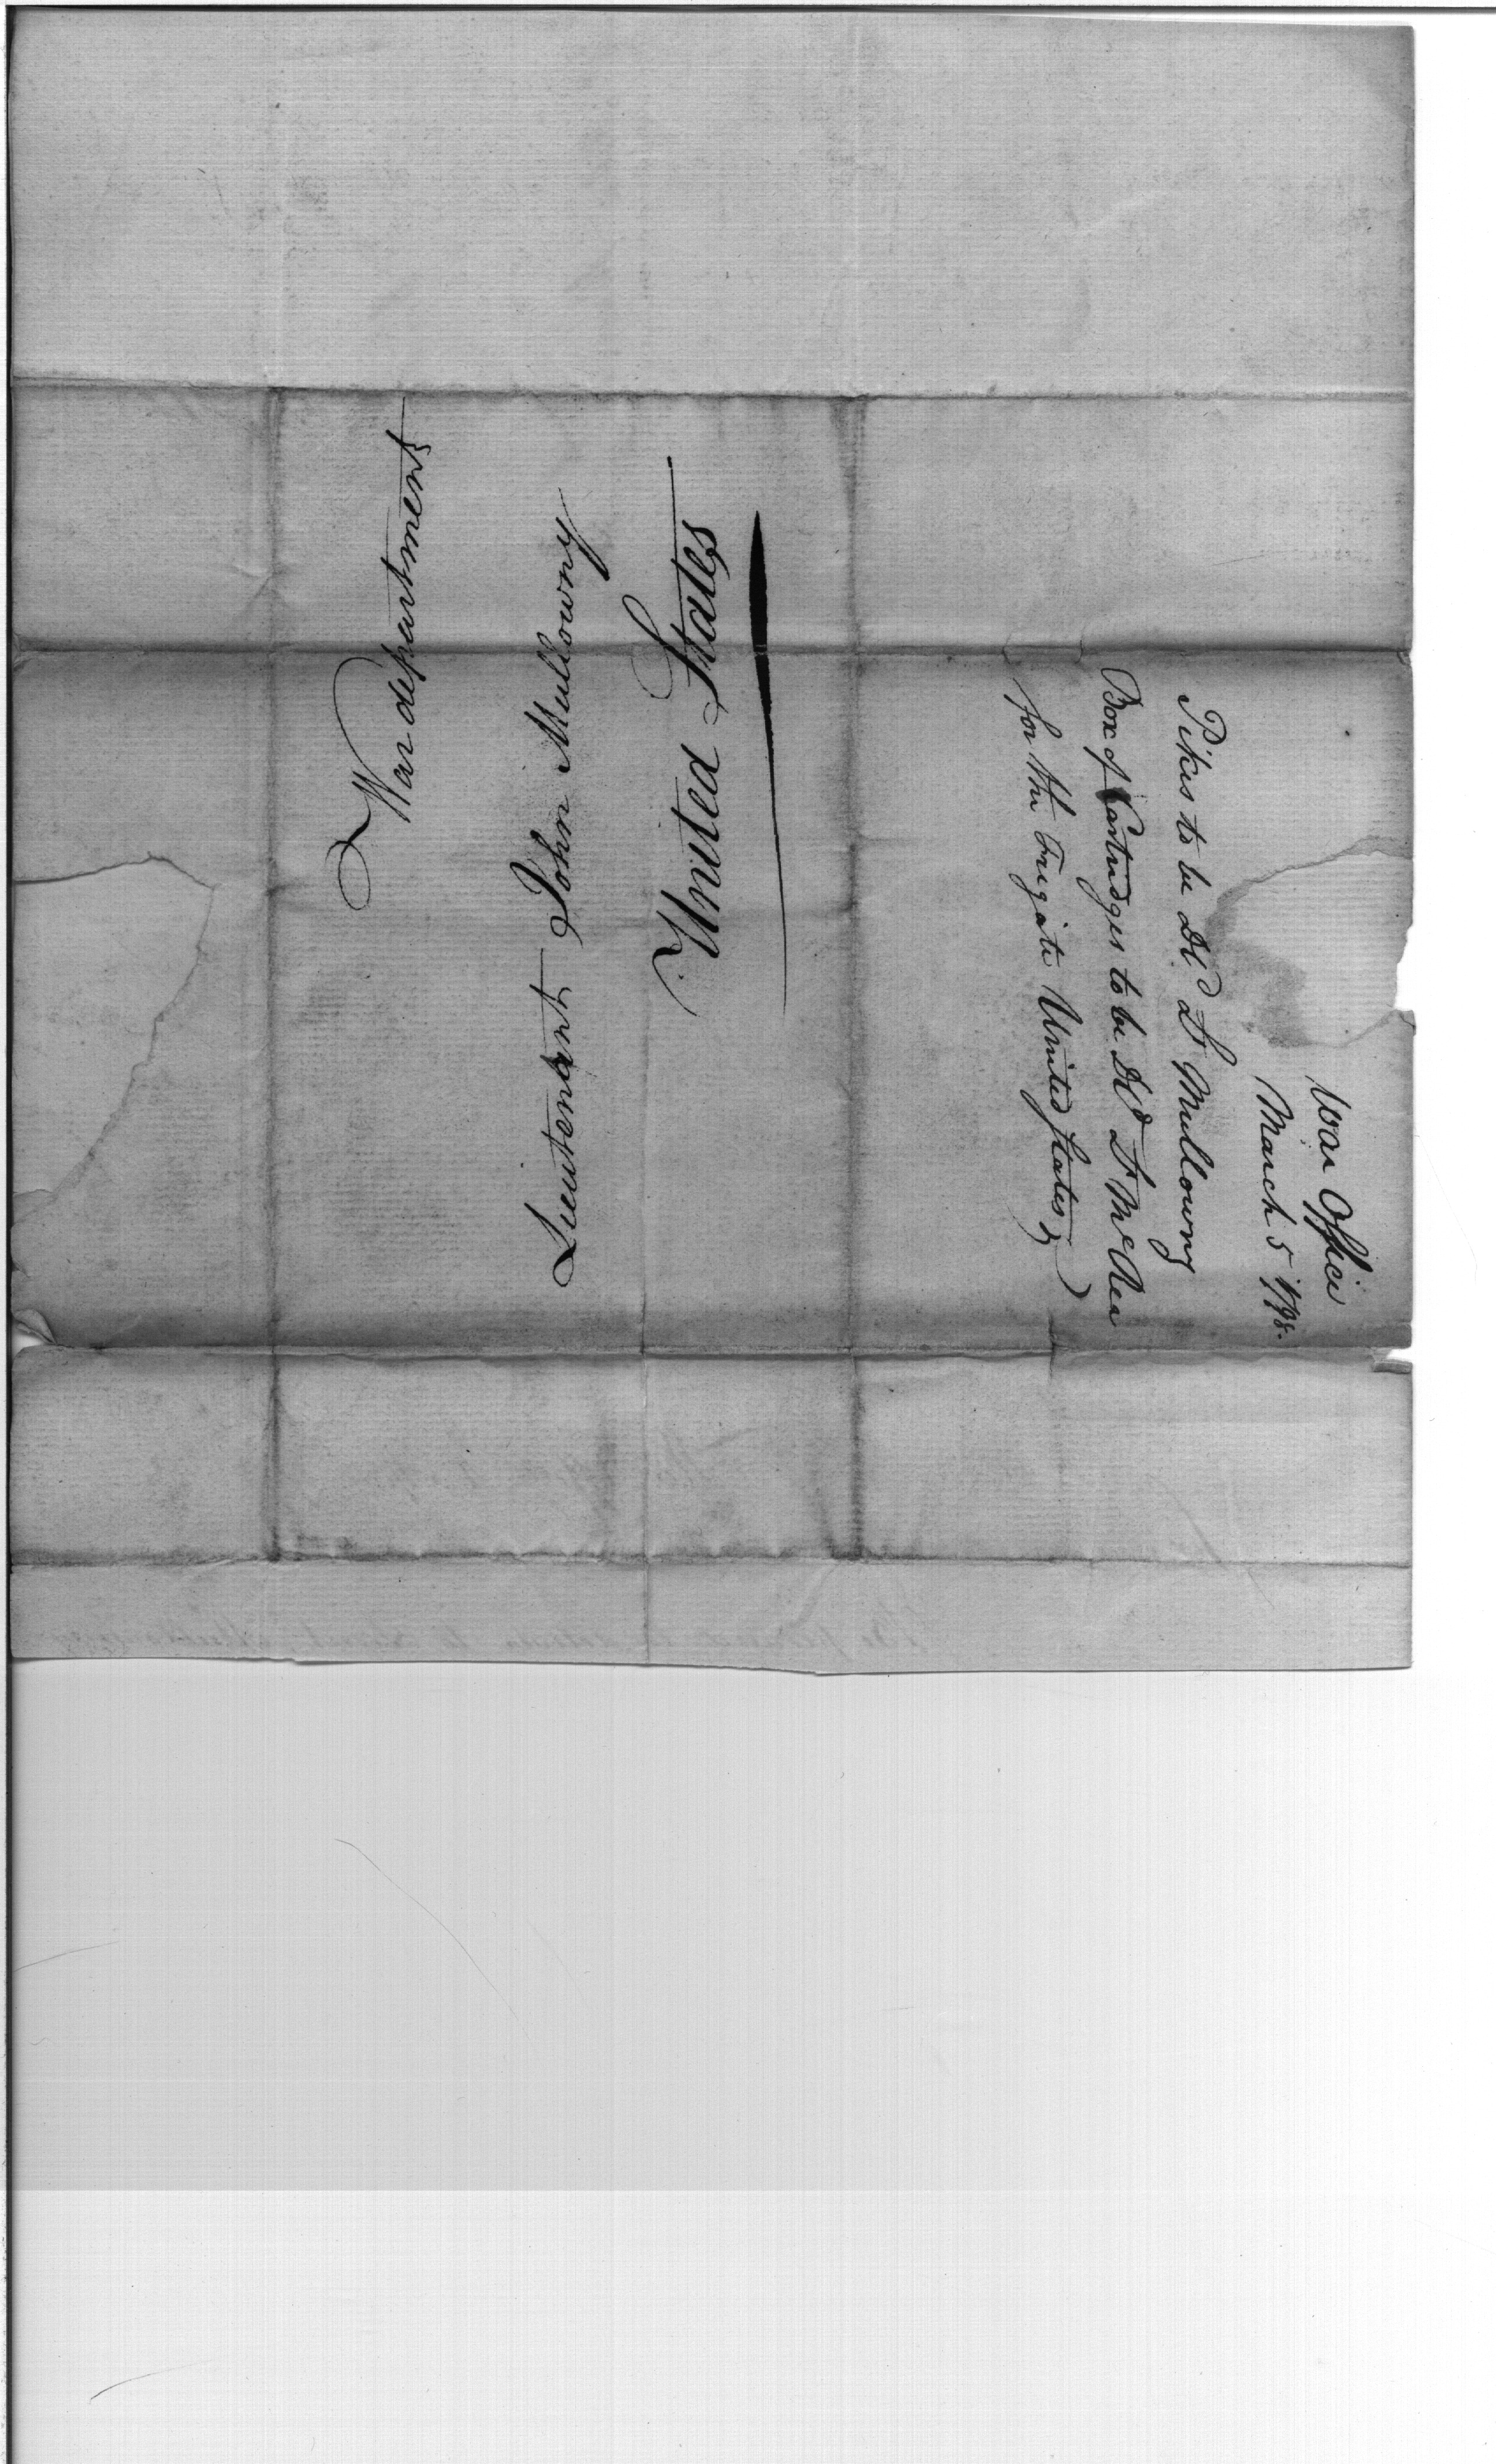 War department
Lieutenant John Mullowny
United States
War Office
March 5 1798.
Pikes to be Dld Lt Mullowny
Box of Cartridges to be Dld Lt McRea
for the Frigate United States